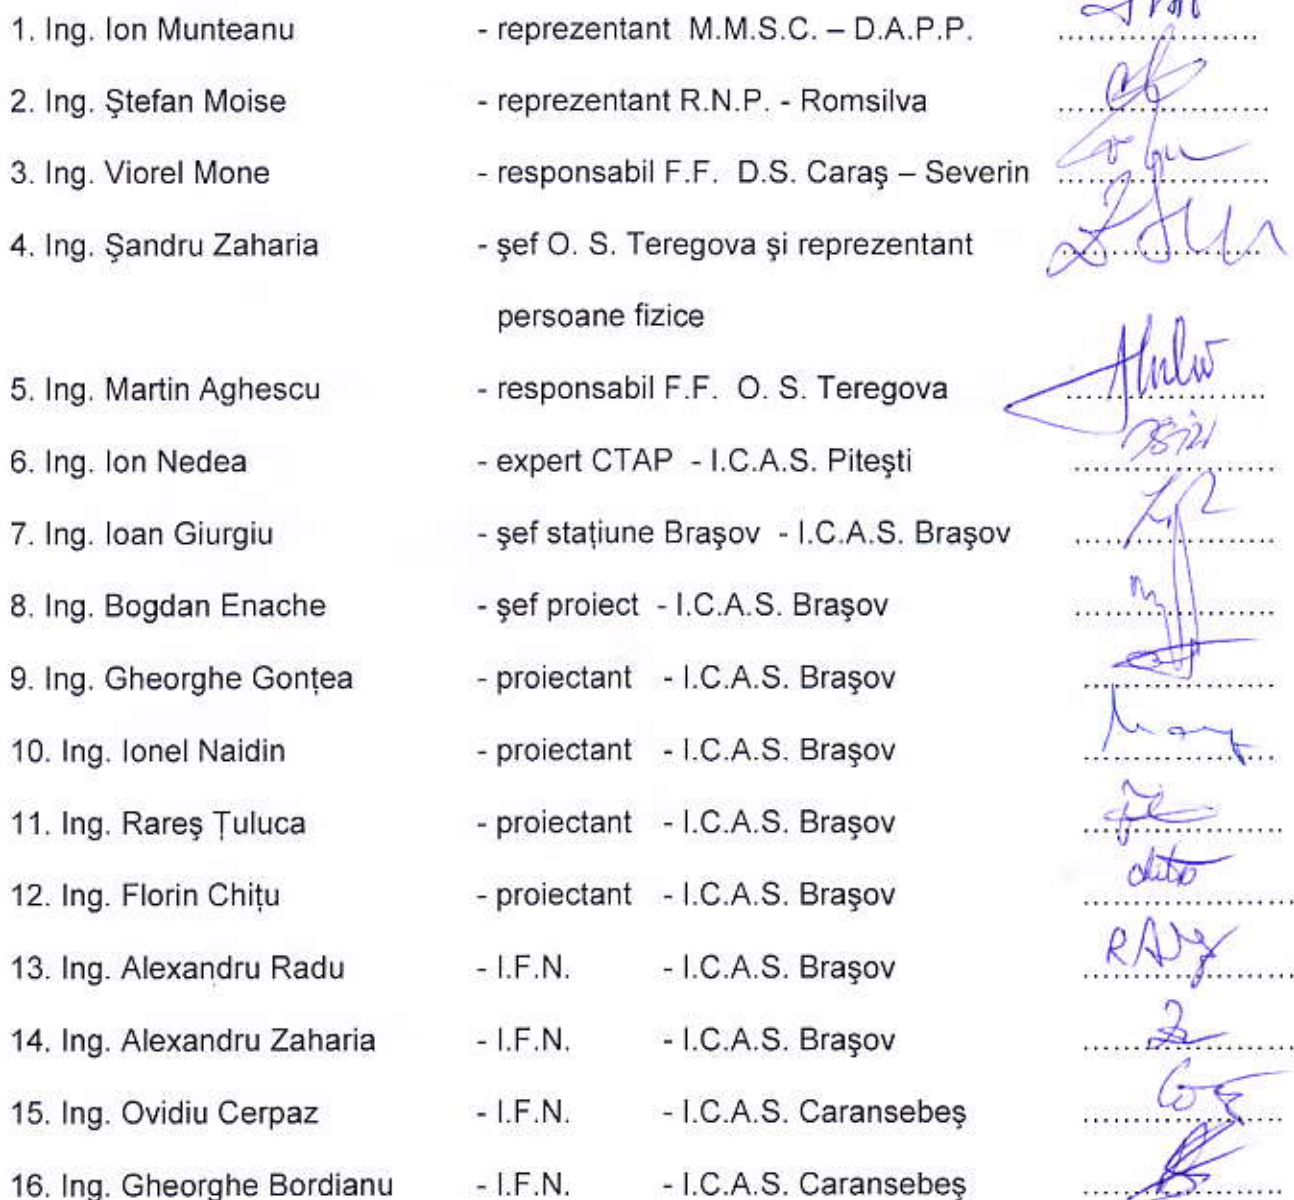 1. Ing. Ion Munteanu - reprezentant M.M.S.C. – D.A.P.P. ....................
2. Ing. Ştefan Moise - reprezentant R.N.P. - Romsilva ....................
3. Ing. Viorel Mone - responsabil F.F. D.S. Caraş – Severin ....................
4. Ing. Şandru Zaharia - şef O. S. Teregova şi reprezentant ....................
persoane fizice
5. Ing. Martin Aghescu - responsabil F.F. O. S. Teregova ....................
6. Ing. Ion Nedea - expert CTAP - I.C.A.S. Piteşti ....................
7. Ing. Ioan Giurgiu - şef staţiune Braşov - I.C.A.S. Braşov ....................
8. Ing. Bogdan Enache - şef proiect - I.C.A.S. Braşov ....................
9. Ing. Gheorghe Gonţea - proiectant - I.C.A.S. Braşov ....................
10. Ing. Ionel Naidin - proiectant - I.C.A.S. Braşov ....................
11. Ing. Rareş Ţuluca - proiectant - I.C.A.S. Braşov ....................
12. Ing. Florin Chiţu - proiectant - I.C.A.S. Braşov ....................
13. Ing. Alexandru Radu - I.F.N. - I.C.A.S. Braşov ....................
14. Ing. Alexandru Zaharia - I.F.N. - I.C.A.S. Braşov ....................
15. Ing. Ovidiu Cerpaz - I.F.N. - I.C.A.S. Caransebeş ....................
16. Ing. Gheorghe Bordianu - I.F.N. - I.C.A.S. Caransebeş ....................